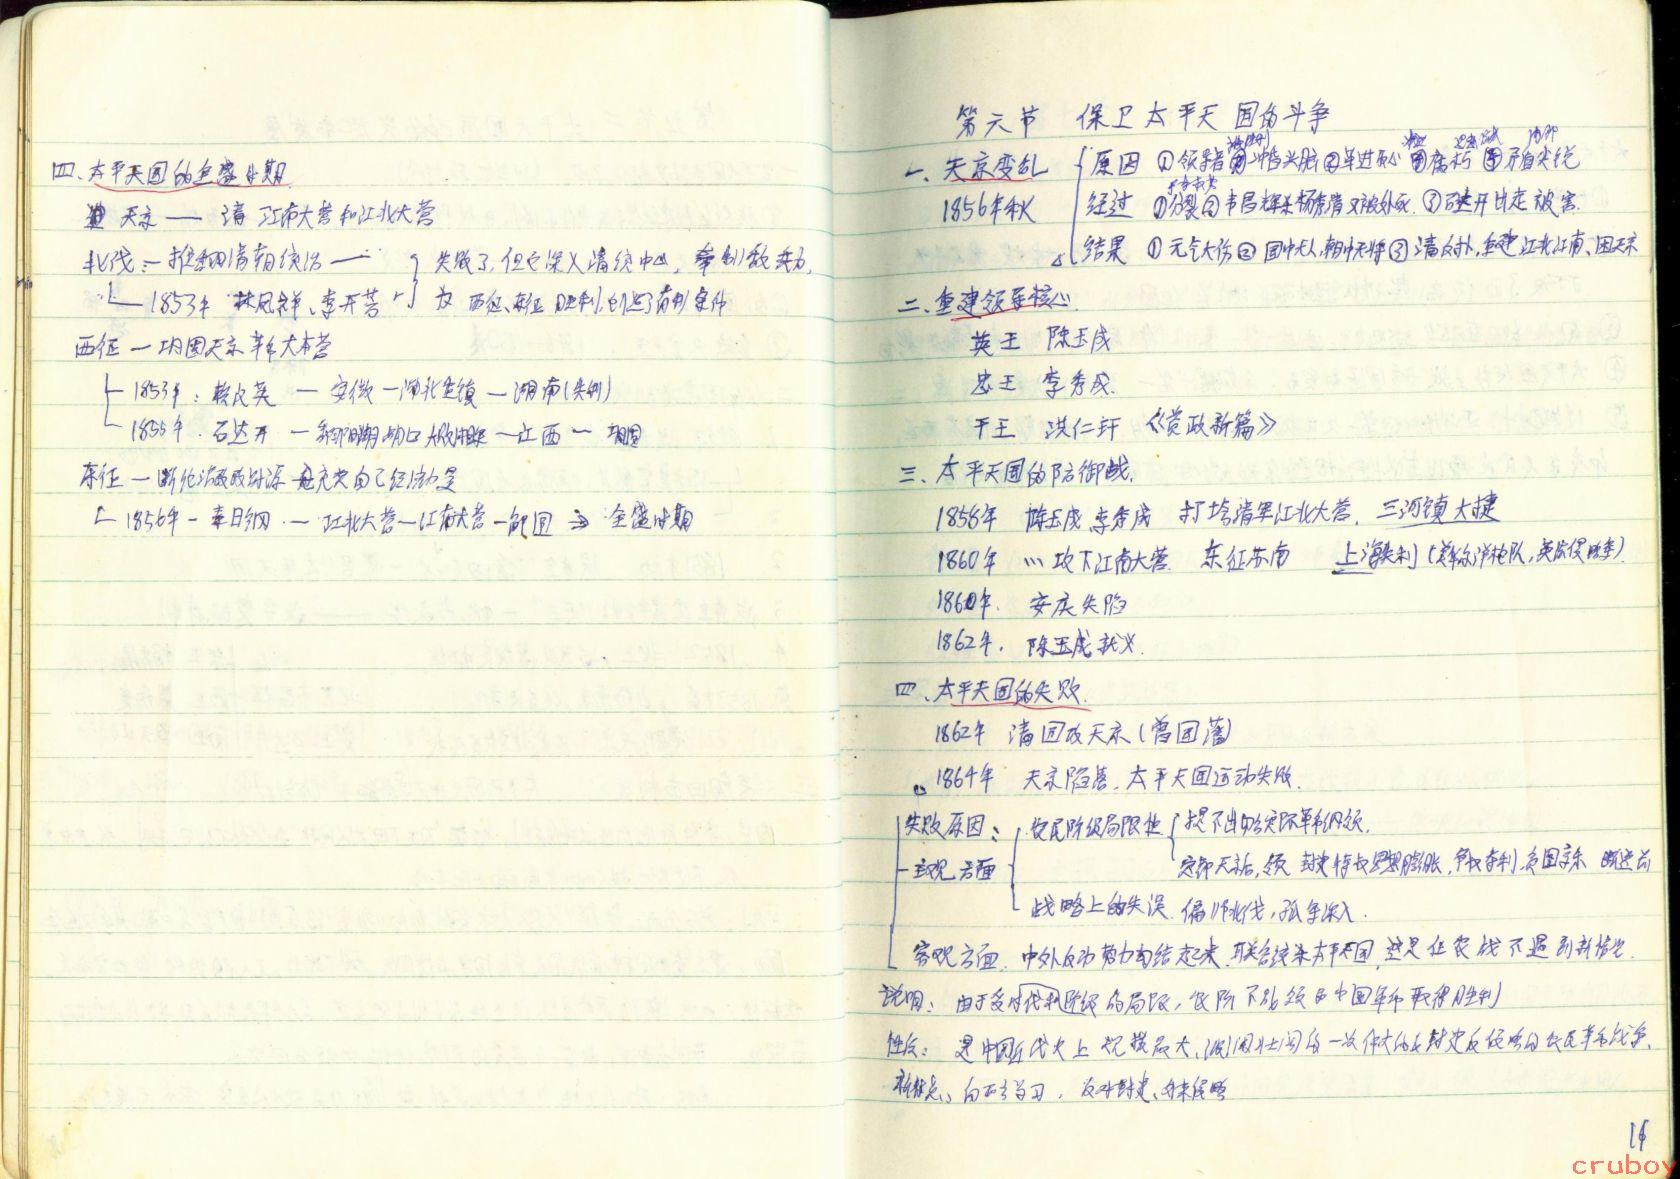 四、太平天国的全盛时期
天京 —— 清 江南大营和江北大营
北伐：—推翻清朝统治 —
1853年 林凤祥、李开芳
失败了，但它深入清统中心，牵制敌兵力，
为 西征、东征 胜利创造了有利条件
西征 — 巩固天京 革命大本营
1853年：赖汉英 — 安徽 — 湖北 — 湖南(失利)
1855年. 石达开 — 鄱阳湖 湖口大败湘军 — 江西 — 巩固
东征 — 断绝清军财源 充实自己经济力量
1856年 — 秦日纲 — 江北大营 — 江南大营 — 解围 ⇒ 全盛时期
第六节 保卫太平天国的斗争
一、天京变乱
1856年秋
原因 ①领导者 冲昏头脑 ②革进 心 ③腐朽 ④矛盾尖锐
经过 ①分裂 ②韦昌辉杀杨秀清 又被处死. ③石达开出走被害.
结果 ①元气大伤 ②国中无人，朝中无将 ③清反扑，重建江北江南、困天京
二、重建领导核心
英王 陈玉成
忠王 李秀成.
干王 洪仁玕 《资政新篇》
三、太平天国的防御战.
1858年 陈玉成 李秀成 打垮清军江北大营. 三河镇大捷
1860年 〃 攻下江南大营. 东征苏南 上海失利 (华尔洋枪队, 英法侵略军).
1860年. 安庆失陷
1862年. 陈玉成就义.
四、太平天国的失败.
1862年 清围攻天京(曾国藩)
1864年 天京陷落，太平天国运动失败.
失败原因：
主观方面
农民阶级局限性
提不出切合实际革命纲领.
定都天京后, 领 封建特权思想膨胀, 争权夺利, 贪图享乐
战略上的失误. 偏师北伐, 孤军深入.
客观方面. 中外反动势力勾结起来, 联合镇压太平天国, 这是任农战不遇到新情况.
说明：由于受时代和阶级的局限，农阶不能领导中国革命取得胜利
性质：是中国近代史上规模最大、波澜壮阔的一次伟大的反封建反侵略的农民革命战争.
新特点、向西方学习，反对封建、对来侵略
14
cruboy